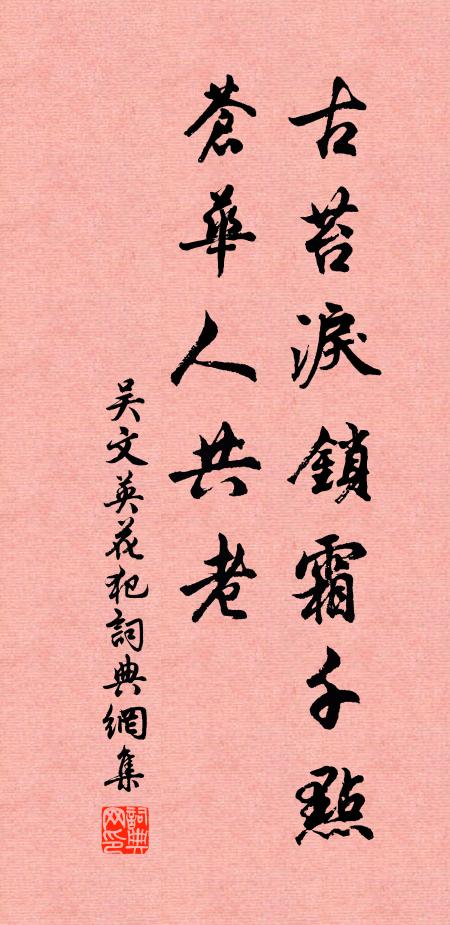 古苔淚鎖霜千點
蒼華人共老
吴文英花犯詞典網集
詞典网印